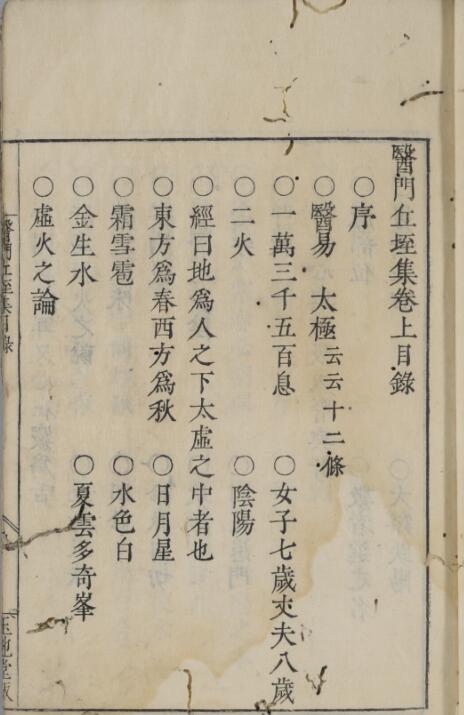 醫門丘垤集卷上目錄
○序
○醫易　太極云云十二條
○一萬三千五百息　○女子七歲丈夫八歲
○二火　○陰陽
○經曰地爲人之下太虛之中者也
○東方爲春西方爲秋　○日月星
○霜雪雹　○水色白
○金生水　○夏雲多奇峯
○虛火之論
醫門丘垤集目錄